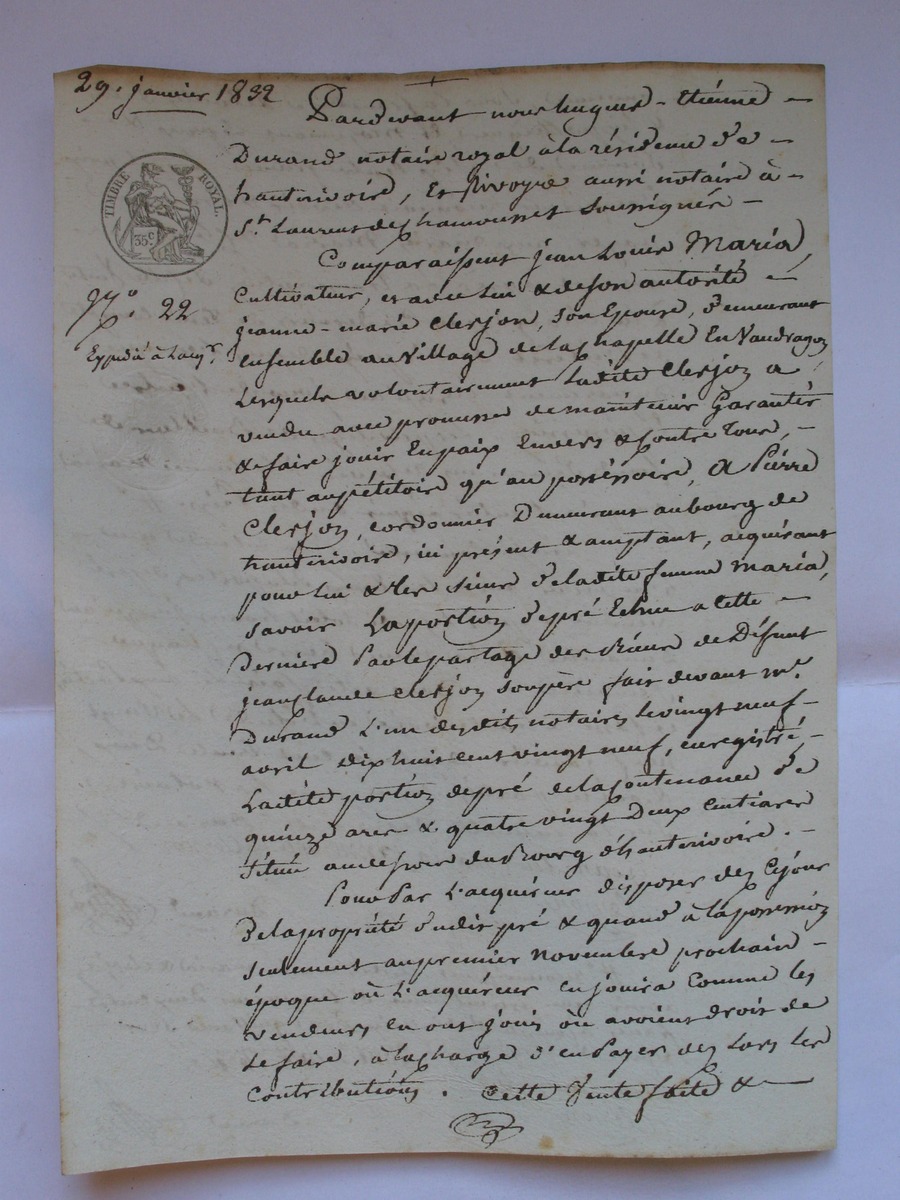 29. janvier 1832
Pardevant nous hugues - thiénne -
Durand notaire royal à la résidence d'e -
hauterivoire, et Rivoyre aussi notaire à -
St. Laurent de chamousset soussignés -
TIMBRE ROYAL.
35 c.
Comparaissent jean Louis Maria,
Cultivateur, et avec lui & de son autorité -
N.° 22
jeanne - marie Clerjon, son Epouse, demeurant
Expédié à l'acqr.
ensemble au Village de la chapelle En Vaudragon
Lesquels volontairement Ladite Clerjon a
vendu avec promesse de maintenir Garantir
& faire jouir En paix Envers & Contre tous, -
tant au pétitoire qu'au possessoire, A Pierre
Clerjon, cordonnier Demeurant au bourg de
hauterivoire, ici présent & acceptant, acquérant
pour lui & les siens de ladite femme Maria,
savoir La portion de pré Echue a Cette -
Dernière Par le partage des Biens de Défunt
jean Claude Clerjon son père fait devant me.
Durand L'un desdits notaires le vingt neuf -
avril dix huit cent vingt neuf, enregistré, -
Ladite portion de pré de la Contenance de
quinze ares & quatre vingt Deux Centiares
situé au du Bourg d'hauterivoire. -
Pour Par L'acquéreur disposer dès Cejour
de la propriété dudit pré & quand à la possession
seulement au premier Novembre prochain -
époque où L'acquéreur en jouira Comme les
vendeurs en ont joui où avoient droit de
Le faire, à la charge d'en Payer dès Lors les
Contributions. Cette Vente faite & -